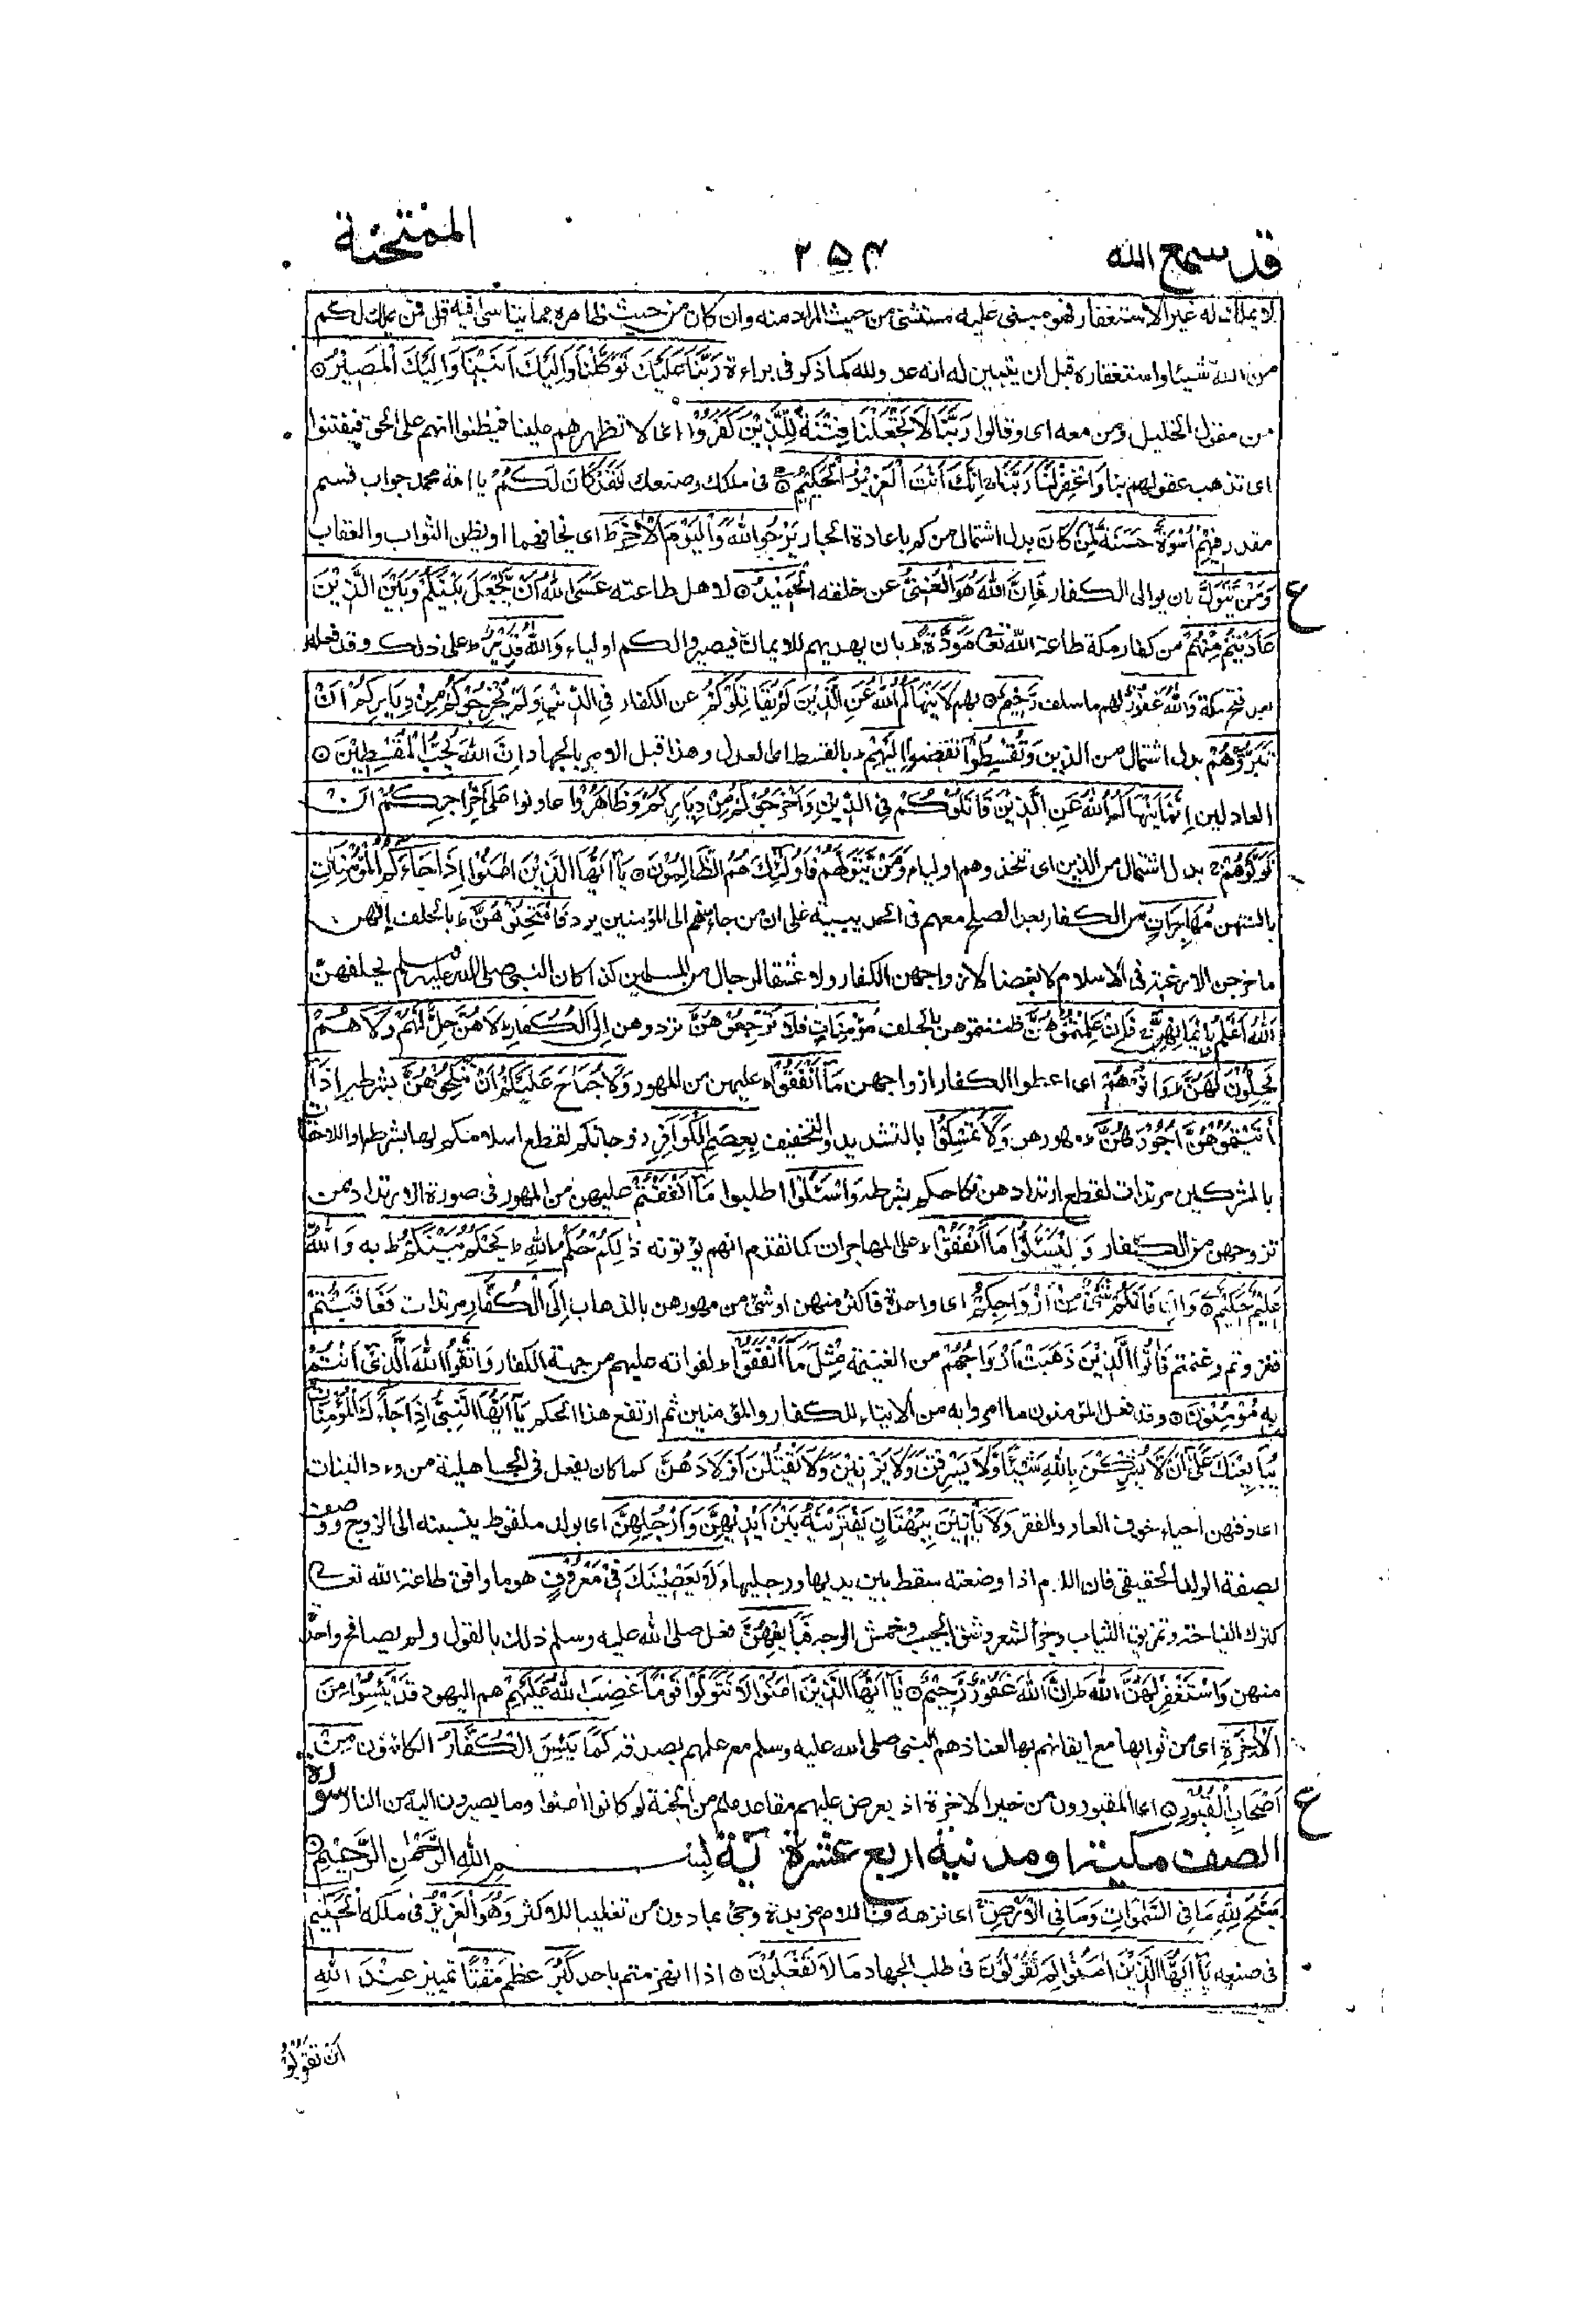 قد سمع الله
۲۵۴
الممتحنة
لا يملك له غير الاستغفار فهو مبنى عليه مستثنى من حيث المراد منه وان كان من حيث ظاهره مما يتاسى فيه قل فمن يملك لكم
من الله شيئا واستغفاره قبل ان يتبين له انه عدو لله كما ذكر فى براءة رَبَّنَا عَلَيْكَ تَوَكَّلْنَا وَاِلَيْكَ اَنَبْنَا وَاِلَيْكَ الْمَصِيْرُ ۝
من مقول الخليل ومن معه اى وقالوا رَبَّنَا لَا تَجْعَلْنَا فِتْنَةً لِّلَّذِيْنَ كَفَرُوْا اى لا تظهرهم علينا فيظنوا انهم على الحق فيفتنوا
اى تذهب عقولهم بنا وَاغْفِرْ لَنَا رَبَّنَا ۚ اِنَّكَ اَنْتَ الْعَزِيْزُ الْحَكِيْمُ ۝ فى ملكك وصنعك لَقَدْ كَانَ لَكُمْ يا امة محمد جواب قسم
مقدر فِيْهِمْ اُسْوَةٌ حَسَنَةٌ لِّمَنْ كَانَ بدل اشتمال من كم باعادة الجار يَرْجُوا اللهَ وَالْيَوْمَ الْاٰخِرَ ط اى يخافهما او يظن الثواب والعقاب
وَمَنْ يَّتَوَلَّ بان يوالى الكفار فَاِنَّ اللهَ هُوَ الْغَنِىُّ عن خلقه الْحَمِيْدُ ۝ لاهل طاعته عَسَى اللهُ اَنْ يَّجْعَلَ بَيْنَكُمْ وَبَيْنَ الَّذِيْنَ
ع
عَادَيْتُمْ مِّنْهُمْ من كفار مكة طاعة الله تعا مَوَدَّةً ط بان يهديهم للايمان فيصيروا لكم اولياء وَاللهُ قَدِيْرٌ ط على ذلك وقد فعله
بعد فتح مكة وَاللهُ غَفُوْرٌ لهم ما سلف رَّحِيْمٌ ۝ بهم لَا يَنْهٰىكُمُ اللهُ عَنِ الَّذِيْنَ لَمْ يُقَاتِلُوْكُمْ عن الكفار فِى الدِّيْنِ وَلَمْ يُخْرِجُوْكُمْ مِّنْ دِيَارِكُمْ اَنْ
تَبَرُّوْهُمْ بدل اشتمال من الذين وَتُقْسِطُوْا تفضوا اِلَيْهِمْ ط بالقسط اى العدل وهذا قبل الامر بالجهاد اِنَّ اللهَ يُحِبُّ الْمُقْسِطِيْنَ ۝
العادلين اِنَّمَا يَنْهٰىكُمُ اللهُ عَنِ الَّذِيْنَ قَاتَلُوْكُمْ فِى الدِّيْنِ وَاَخْرَجُوْكُمْ مِّنْ دِيَارِكُمْ وَظَاهَرُوْا عاونوا عَلٰى اِخْرَاجِكُمْ اَنْ
تَوَلَّوْهُمْ ج بدل اشتمال من الذين اى تتخذوهم اولياء وَمَنْ يَّتَوَلَّهُمْ فَاُولٰئِكَ هُمُ الظَّالِمُوْنَ ۝ يٰاَيُّهَا الَّذِيْنَ اٰمَنُوْا اِذَا جَاءَكُمُ الْمُؤْمِنَاتُ
بالسنتهن مُهَاجِرَاتٍ من الكفار بعد الصلح معهم فى الحديبية على ان من جاء منهم الى المؤمنين يرد فَامْتَحِنُوْهُنَّ ط بالحلف انهن
ما خرجن الا رغبة فى الاسلام لا بغضا لازواجهن الكفار ولا عشقا لرجال من المسلمين كذا كان النبى صلى الله عليه وسلم يحلفهن
اَللهُ اَعْلَمُ بِاِيْمَانِهِنَّ ج فَاِنْ عَلِمْتُمُوْهُنَّ ظننتموهن بالحلف مُؤْمِنَاتٍ فَلَا تَرْجِعُوْهُنَّ تردوهن اِلَى الْكُفَّارِ ط لَا هُنَّ حِلٌّ لَّهُمْ وَلَا هُمْ
يَحِلُّوْنَ لَهُنَّ ط وَاٰتُوْهُمْ اى اعطوا الكفار ازواجهن مَّا اَنْفَقُوْا ط عليهن من المهور وَلَا جُنَاحَ عَلَيْكُمْ اَنْ تَنْكِحُوْهُنَّ بشرطه اِذَا
اٰتَيْتُمُوْهُنَّ اُجُوْرَهُنَّ ط مهورهن وَلَا تُمْسِكُوْا بالتشديد والتخفيف بِعِصَمِ الْكَوَافِرِ زوجاتكم لقطع اسلامكم لها بشرطه او اللاحقات
بالمشركين مرتدات لقطع ارتدادهن نكاحكم بشرطه وَاسْئَلُوْا اطلبوا مَا اَنْفَقْتُمْ عليهن من المهور فى صورة الارتداد ممن
تزوجهن من الكفار وَلْيَسْئَلُوْا مَا اَنْفَقُوْا ط على المهاجرات كما تقدم انهم يؤتونه ذٰلِكُمْ حُكْمُ اللهِ ط يَحْكُمُ بَيْنَكُمْ ط به وَاللهُ
عَلِيْمٌ حَكِيْمٌ ۝ وَاِنْ فَاتَكُمْ شَىْءٌ مِّنْ اَزْوَاجِكُمْ اى واحدة فاكثر منهن او شئ من مهورهن بالذهاب اِلَى الْكُفَّارِ مرتدات فَعَاقَبْتُمْ
فغزوتم وغنمتم فَاٰتُوا الَّذِيْنَ ذَهَبَتْ اَزْوَاجُهُمْ من الغنيمة مِّثْلَ مَا اَنْفَقُوْا ط لفواته عليهم من جهة الكفار وَاتَّقُوا اللهَ الَّذِىْ اَنْتُمْ
بِهٖ مُؤْمِنُوْنَ ۝ وقد فعل المؤمنون ما امروا به من الايتاء للكفار والمؤمنين ثم ارتفع هذا الحكم يٰاَيُّهَا النَّبِىُّ اِذَا جَاءَكَ الْمُؤْمِنَاتُ
يُبَايِعْنَكَ عَلٰى اَنْ لَّا يُشْرِكْنَ بِاللهِ شَيْئًا وَّلَا يَسْرِقْنَ وَلَا يَزْنِيْنَ وَلَا يَقْتُلْنَ اَوْلَادَهُنَّ كما كان يفعل فى الجاهلية من وءد البنات
اى دفنهن احياء خوف العار والفقر وَلَا يَاْتِيْنَ بِبُهْتَانٍ يَّفْتَرِيْنَهٗ بَيْنَ اَيْدِيْهِنَّ وَاَرْجُلِهِنَّ اى بولد ملقوط ينسبنه الى الزوج ووصف
بصفة الولد الحقيقى فان الام اذا وضعته سقط بين يديها ورجليها وَلَا يَعْصِيْنَكَ فِىْ مَعْرُوْفٍ هو ما وافق طاعة الله تعالى
كترك النياحة وتمزيق الثياب وجز الشعر وشق الجيب وخمش الوجه فَبَايِعْهُنَّ فعل صلى الله عليه وسلم ذلك بالقول ولم يصافح واحدة
منهن وَاسْتَغْفِرْ لَهُنَّ اللهَ ط اِنَّ اللهَ غَفُوْرٌ رَّحِيْمٌ ۝ يٰاَيُّهَا الَّذِيْنَ اٰمَنُوْا لَا تَتَوَلَّوْا قَوْمًا غَضِبَ اللهُ عَلَيْهِمْ هم اليهود قَدْ يَئِسُوْا مِنَ
الْاٰخِرَةِ اى من ثوابها مع ايقانهم بها لعنادهم النبى صلى الله عليه وسلم مع علمهم بصدقه كَمَا يَئِسَ الْكُفَّارُ الكائنون مِنْ
اَصْحَابِ الْقُبُوْرِ ۝ اى المقبورون من خير الاخرة اذ يعرض عليهم مقاعدهم من الجنة لو كانوا امنوا وما يصيرون اليه من النار سورة
ع
الصف مكية او مدنية اربع عشرة آية بِسْمِ اللهِ الرَّحْمٰنِ الرَّحِيْمِ ۝
سَبَّحَ لِلّٰهِ مَا فِى السَّمٰوَاتِ وَمَا فِى الْاَرْضِ ج اى نزهه فاللام مزيدة وجئ بما دون من تغليبا للاكثر وَهُوَ الْعَزِيْزُ فى ملكه الْحَكِيْمُ
فى صنعه يٰاَيُّهَا الَّذِيْنَ اٰمَنُوْا لِمَ تَقُوْلُوْنَ فى طلب الجهاد مَا لَا تَفْعَلُوْنَ ۝ اذا انهزمتم باحد كَبُرَ عظم مَقْتًا تمييز عِنْدَ اللهِ
اَنْ تَقُوْلُوْا